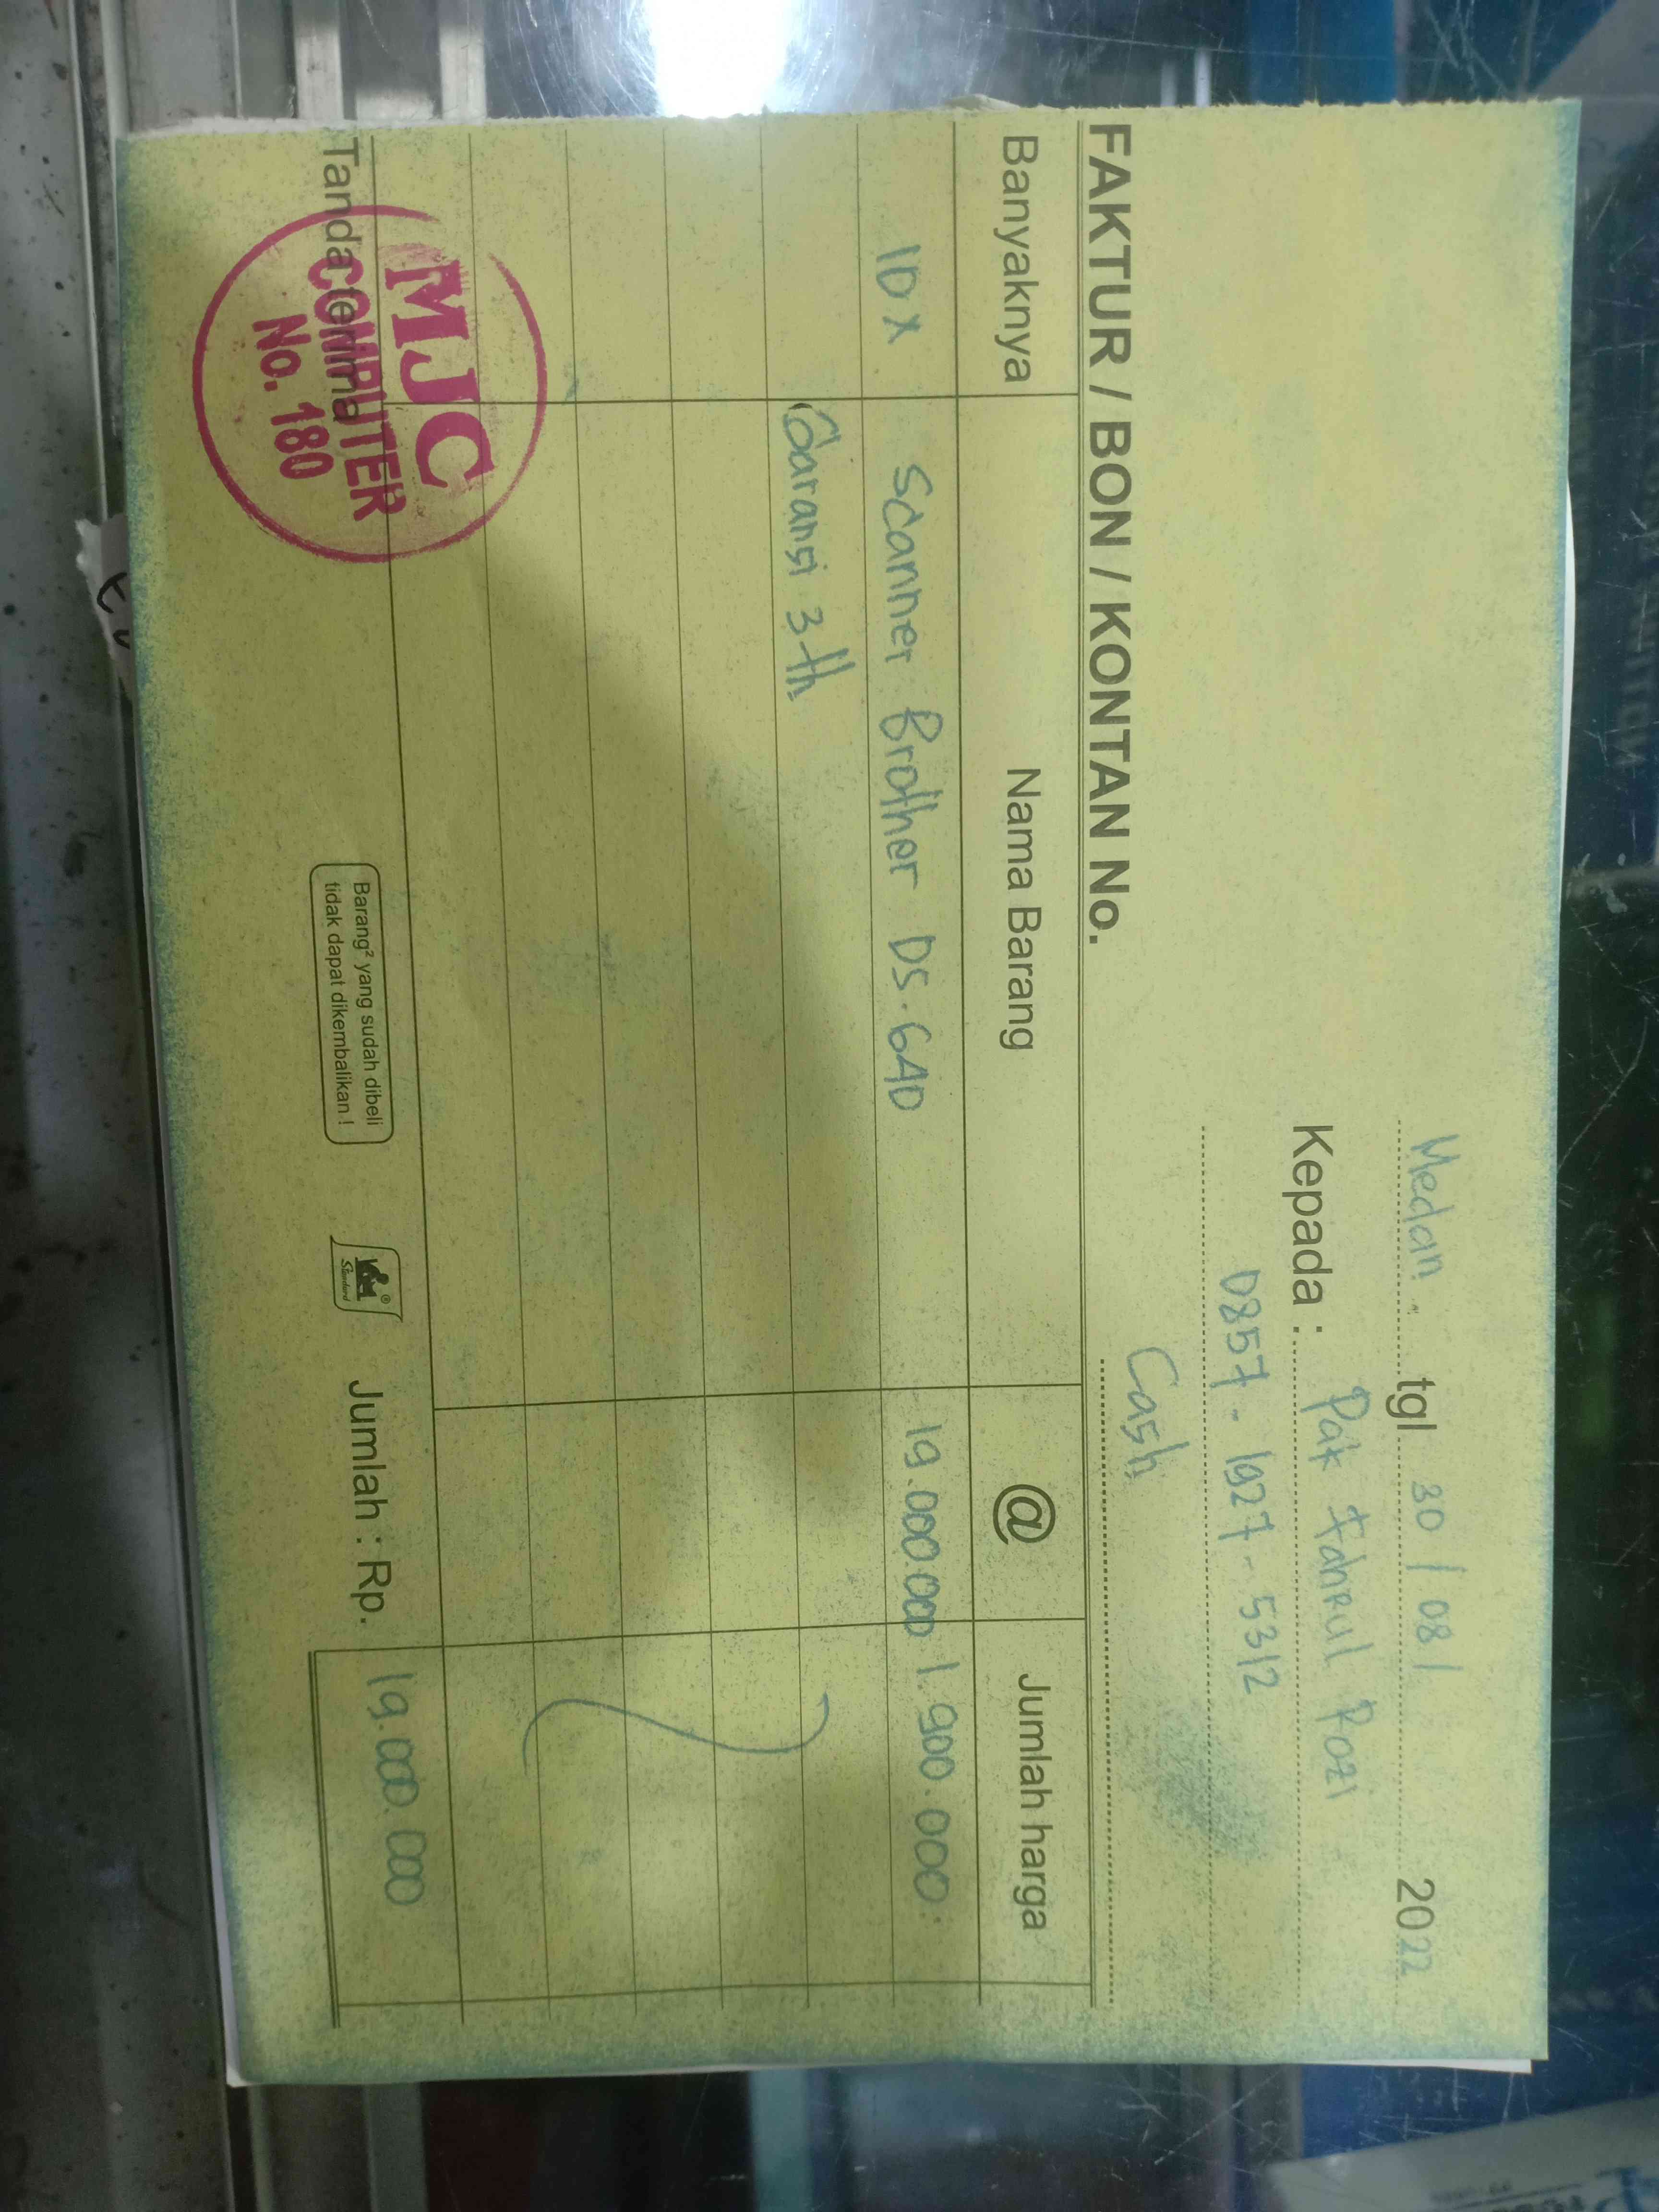 Medan tgl 30 / 08 / 2022
Kepada : Pak Fahrul Rozi
0857 - 1927 - 5312
Cash
FAKTUR / BON / KONTAN No.
Banyaknya Nama Barang @ Jumlah harga
10 x Scanner Brother DS.640 19.000.000 1.900.000
Garansi 3 th
Tanda terima Jumlah : Rp. 19.000.000
MJC
COMPUTER
No. 180
Barang² yang sudah dibeli
tidak dapat dikembalikan !
Standard